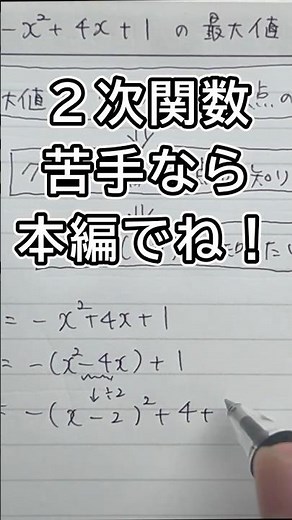 -x²+4x+1 の 最大値
大値
点の
2次関数
苦手なら
本編でね！
知り
= -x²+4x+1
= -(x²-4x)+1
↓÷2
= -(x-2)²+4+